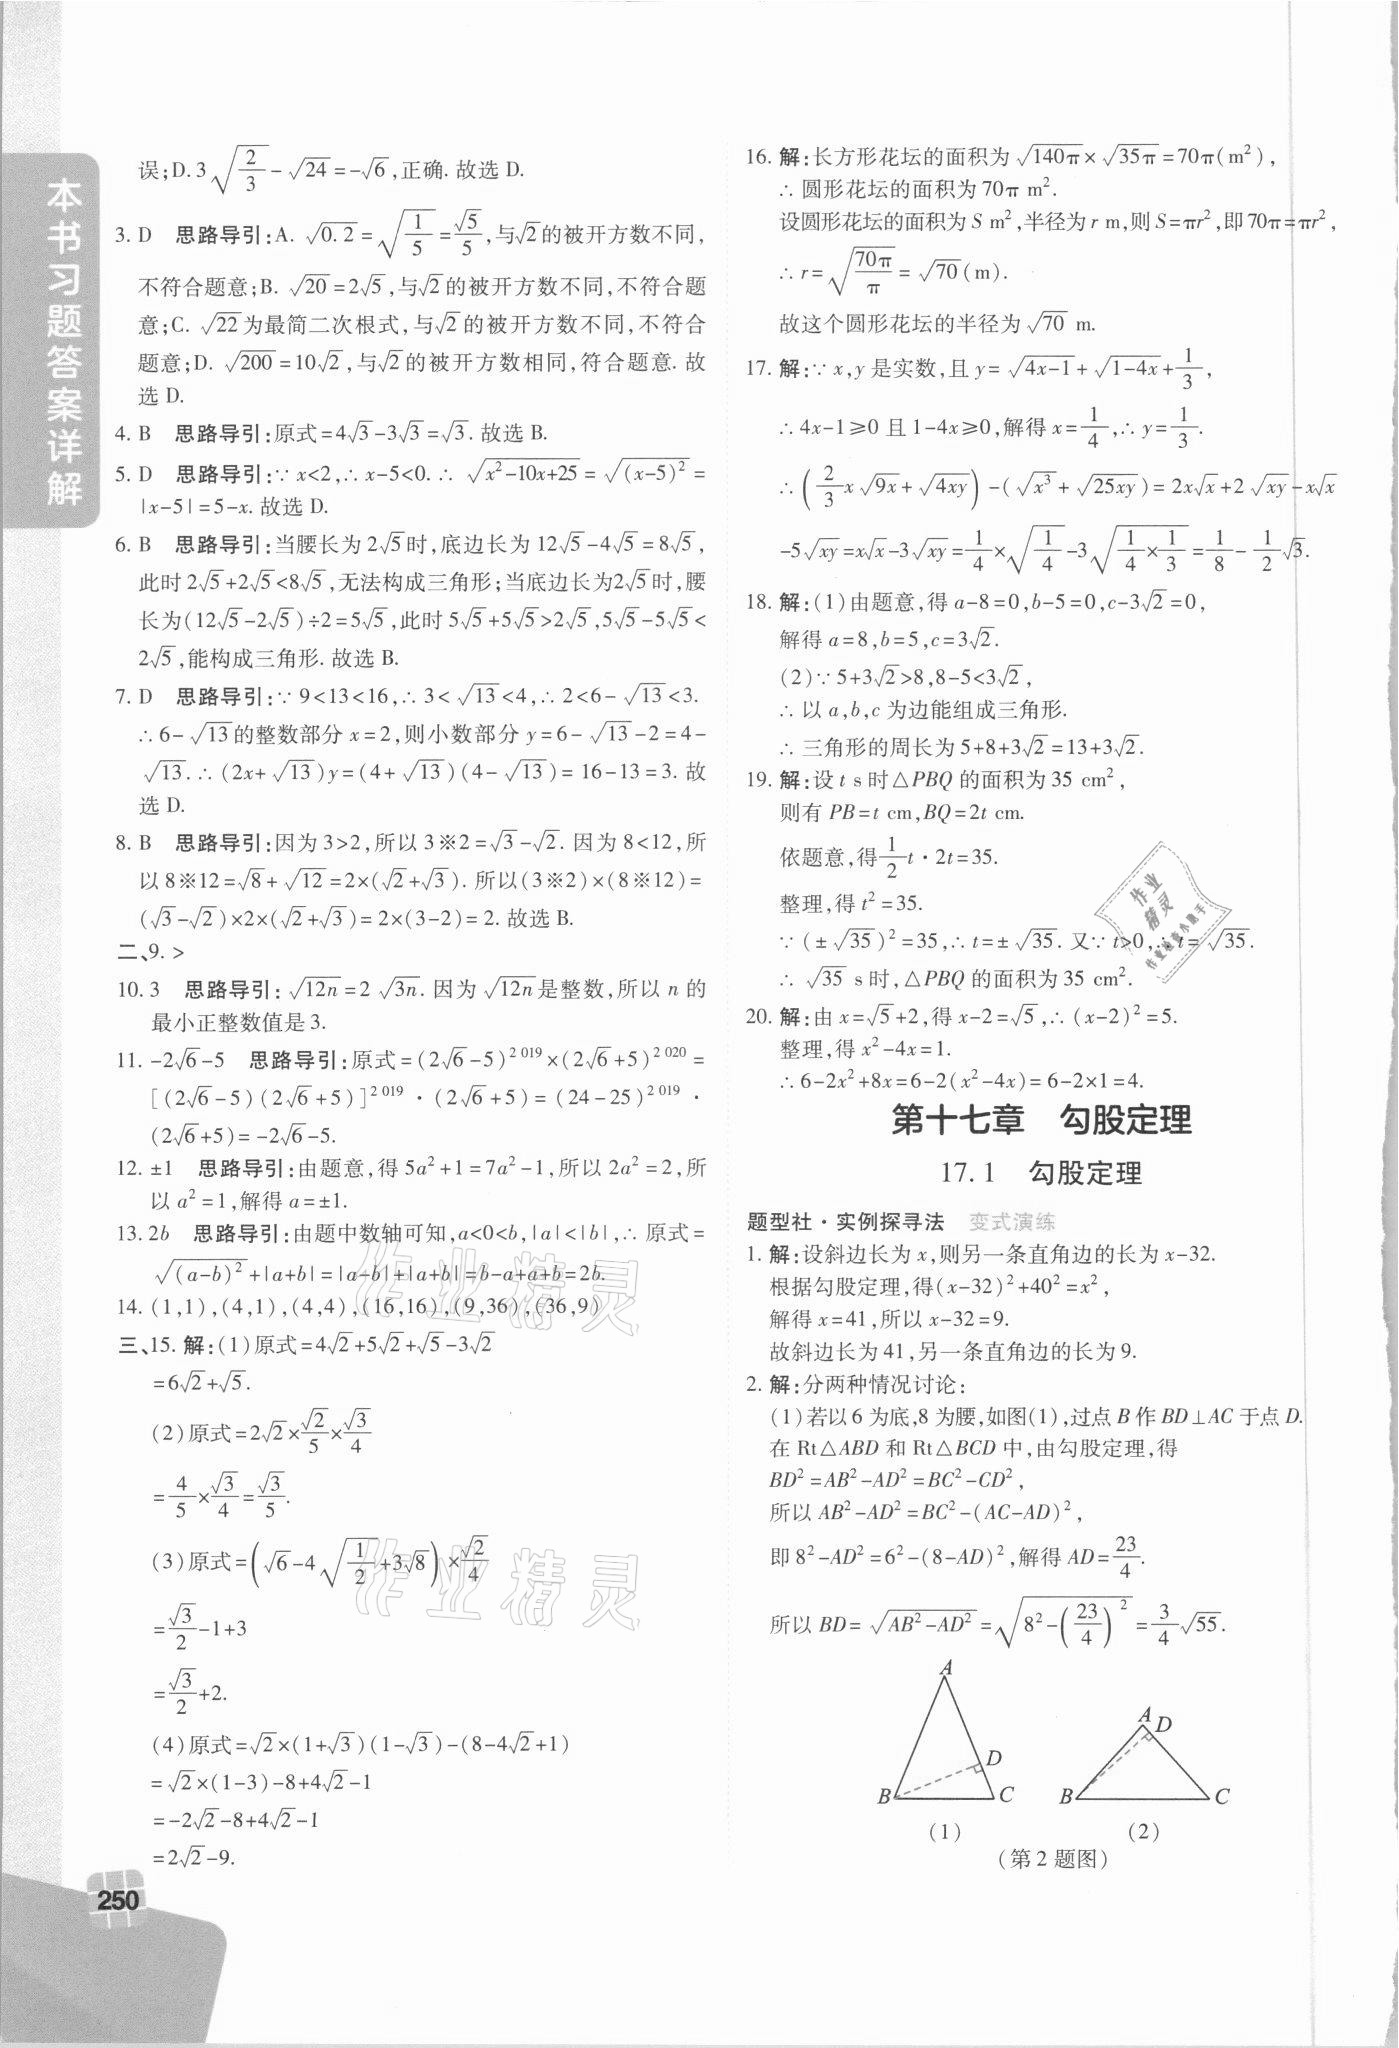 本书习题答案详解
误;D. 3√(2/3)-√24=-√6,正确. 故选 D.
3. D 思路导引:A. √0.2=√(1/5)=√5/5,与√2的被开方数不同,
不符合题意;B. √20=2√5,与√2的被开方数不同,不符合题
意;C. √22为最简二次根式,与√2的被开方数不同,不符合
题意;D. √200=10√2,与√2的被开方数相同,符合题意. 故
选 D.
4. B 思路导引:原式=4√3-3√3=√3. 故选 B.
5. D 思路导引:∵ x<2,∴ x-5<0. ∴ √(x²-10x+25)=√((x-5)²)=
|x-5|=5-x. 故选 D.
6. B 思路导引:当腰长为 2√5时,底边长为 12√5-4√5=8√5,
此时 2√5+2√5<8√5,无法构成三角形;当底边长为2√5时,腰
长为(12√5-2√5)÷2=5√5,此时 5√5+5√5>2√5,5√5-5√5<
2√5,能构成三角形. 故选 B.
7. D 思路导引:∵ 9<13<16,∴ 3<√13<4,∴ 2<6-√13<3.
∴ 6-√13的整数部分 x=2,则小数部分 y=6-√13-2=4-
√13. ∴ (2x+√13)y=(4+√13)(4-√13)=16-13=3. 故
选 D.
8. B 思路导引:因为 3>2,所以 3※2=√3-√2. 因为 8<12,所
以 8※12=√8+√12=2×(√2+√3). 所以(3※2)×(8※12)=
(√3-√2)×2×(√2+√3)=2×(3-2)=2. 故选 B.
二、9. >
10. 3 思路导引:√12n=2√3n. 因为√12n是整数,所以 n 的
最小正整数值是 3.
11. -2√6-5 思路导引:原式=(2√6-5)^2 019×(2√6+5)^2 020=
[(2√6-5)(2√6+5)]^2 019·(2√6+5)=(24-25)^2 019·
(2√6+5)=-2√6-5.
12. ±1 思路导引:由题意,得 5a²+1=7a²-1,所以 2a²=2,所
以 a²=1,解得 a=±1.
13. 2b 思路导引:由题中数轴可知,a<0<b,|a|<|b|,∴ 原式=
√((a-b)²)+|a+b|=|a-b|+|a+b|=b-a+a+b=2b.
14. (1,1),(4,1),(4,4),(16,16),(9,36),(36,9)
三、15. 解:(1)原式=4√2+5√2+√5-3√2
=6√2+√5.
(2)原式=2√2×√2/5×√3/4
=4/5×√3/4=√3/5.
(3)原式=(√6-4√(1/2)+3√8)×√2/4
=√3/2-1+3
=√3/2+2.
(4)原式=√2×(1+√3)(1-√3)-(8-4√2+1)
=√2×(1-3)-8+4√2-1
=-2√2-8+4√2-1
=2√2-9.
250
16. 解:长方形花坛的面积为√140π×√35π=70π(m²),
∴ 圆形花坛的面积为 70π m².
设圆形花坛的面积为 S m²,半径为 r m,则 S=πr²,即 70π=πr²,
∴ r=√(70π/π)=√70(m).
故这个圆形花坛的半径为√70 m.
17. 解:∵ x,y 是实数,且 y=√(4x-1)+√(1-4x)+1/3,
∴ 4x-1≥0 且 1-4x≥0,解得 x=1/4,∴ y=1/3.
∴ (2/3x√9x+√4xy)-(√x³+√25xy)=2x√x+2√xy-x√x
-5√xy=x√x-3√xy=1/4×√(1/4)-3√(1/4×1/3)=1/8-1/2√3.
18. 解:(1)由题意,得 a-8=0,b-5=0,c-3√2=0,
解得 a=8,b=5,c=3√2.
(2)∵ 5+3√2>8,8-5<3√2,
∴ 以 a,b,c 为边能组成三角形.
∴ 三角形的周长为 5+8+3√2=13+3√2.
19. 解:设 t s 时△PBQ 的面积为 35 cm²,
则有 PB=t cm,BQ=2t cm.
依题意,得1/2t·2t=35.
整理,得 t²=35.
∵ (±√35)²=35,∴ t=±√35. 又∵ t>0,∴ t=√35.
∴ √35 s 时,△PBQ 的面积为 35 cm².
20. 解:由 x=√5+2,得 x-2=√5,∴ (x-2)²=5.
整理,得 x²-4x=1.
∴ 6-2x²+8x=6-2(x²-4x)=6-2×1=4.
第十七章 勾股定理
17.1 勾股定理
题型社·实例探寻法 变式演练
1. 解:设斜边长为 x,则另一条直角边的长为 x-32.
根据勾股定理,得(x-32)²+40²=x²,
解得 x=41,所以 x-32=9.
故斜边长为 41,另一条直角边的长为 9.
2. 解:分两种情况讨论:
(1)若以 6 为底,8 为腰,如图(1),过点 B 作 BD⊥AC 于点 D.
在 Rt△ABD 和 Rt△BCD 中,由勾股定理,得
BD²=AB²-AD²=BC²-CD²,
所以 AB²-AD²=BC²-(AC-AD)²,
即 8²-AD²=6²-(8-AD)²,解得 AD=23/4.
所以 BD=√(AB²-AD²)=√(8²-(23/4)²)=3/4√55.
A
D
B
C
(1)
A
D
B
C
(2)
(第 2 题图)
作业精灵
作业精灵
作业
精灵
作业检查小助手